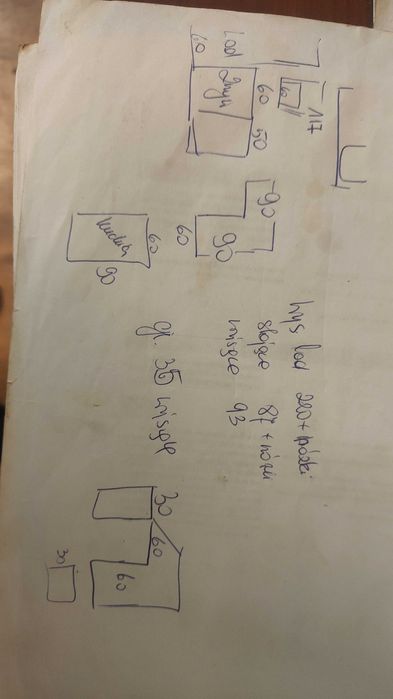 Lod
60
Zmyw
60
50
60
117
90
90
60
kuchnia
60
90
wys lod 200 + nóżki
stojące 87 + nóżki
wiszące 93
gł. 35 wiszące
30
60
60
30